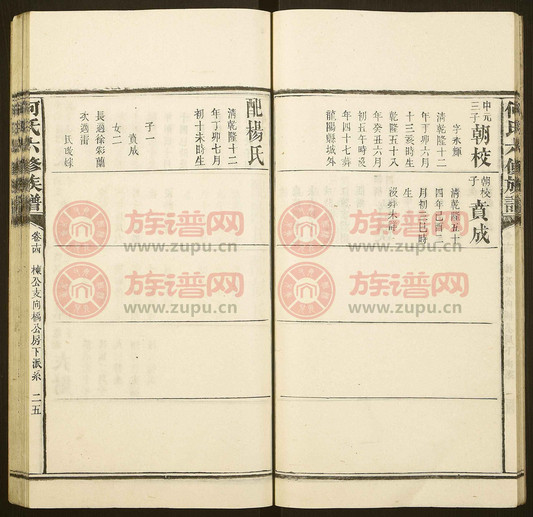 何氏六修族譜
申元三子
朝校
字永輝
清乾隆十二
年丁卯六月
十三辰時生
乾隆五十八
年癸丑六月
初五午時沒
年四十七葬
龍陽縣城外
朝校子
賁成
清乾隆五十
四年己酉二
月初三巳時
生
沒葬未詳
配楊氏
清乾隆十二
年丁卯七月
初十未時生
子一
賁成
女二
長適徐彩蘭
次適雷
氏歿嫁
何氏六修族譜
卷十四
棟公支向橋公房下派系
二五
族谱网
www.zupu.cn
族谱网
www.zupu.cn
族谱网
www.zupu.cn
族谱网
www.zupu.cn